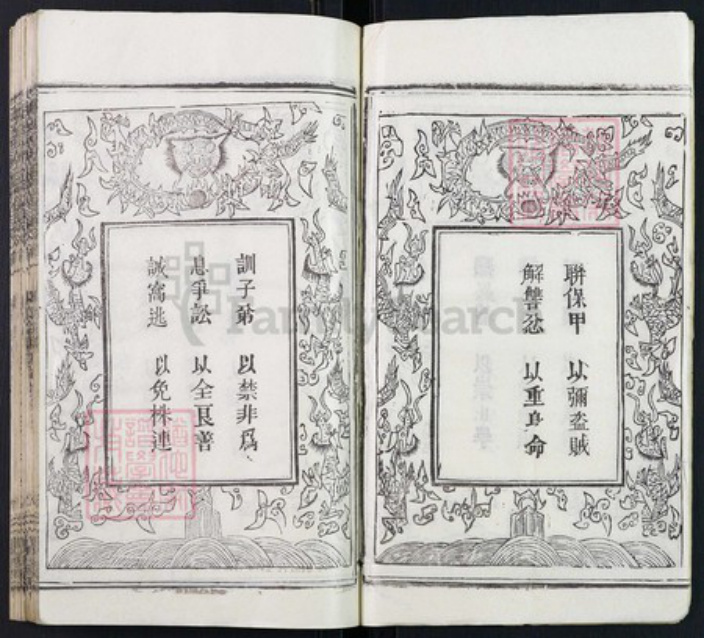 聨保甲 以彌盜賊
解讐忿 以重身命
訓子弟 以禁非爲
息爭訟 以全良善
誡窩逃 以免株連
FamilySearch